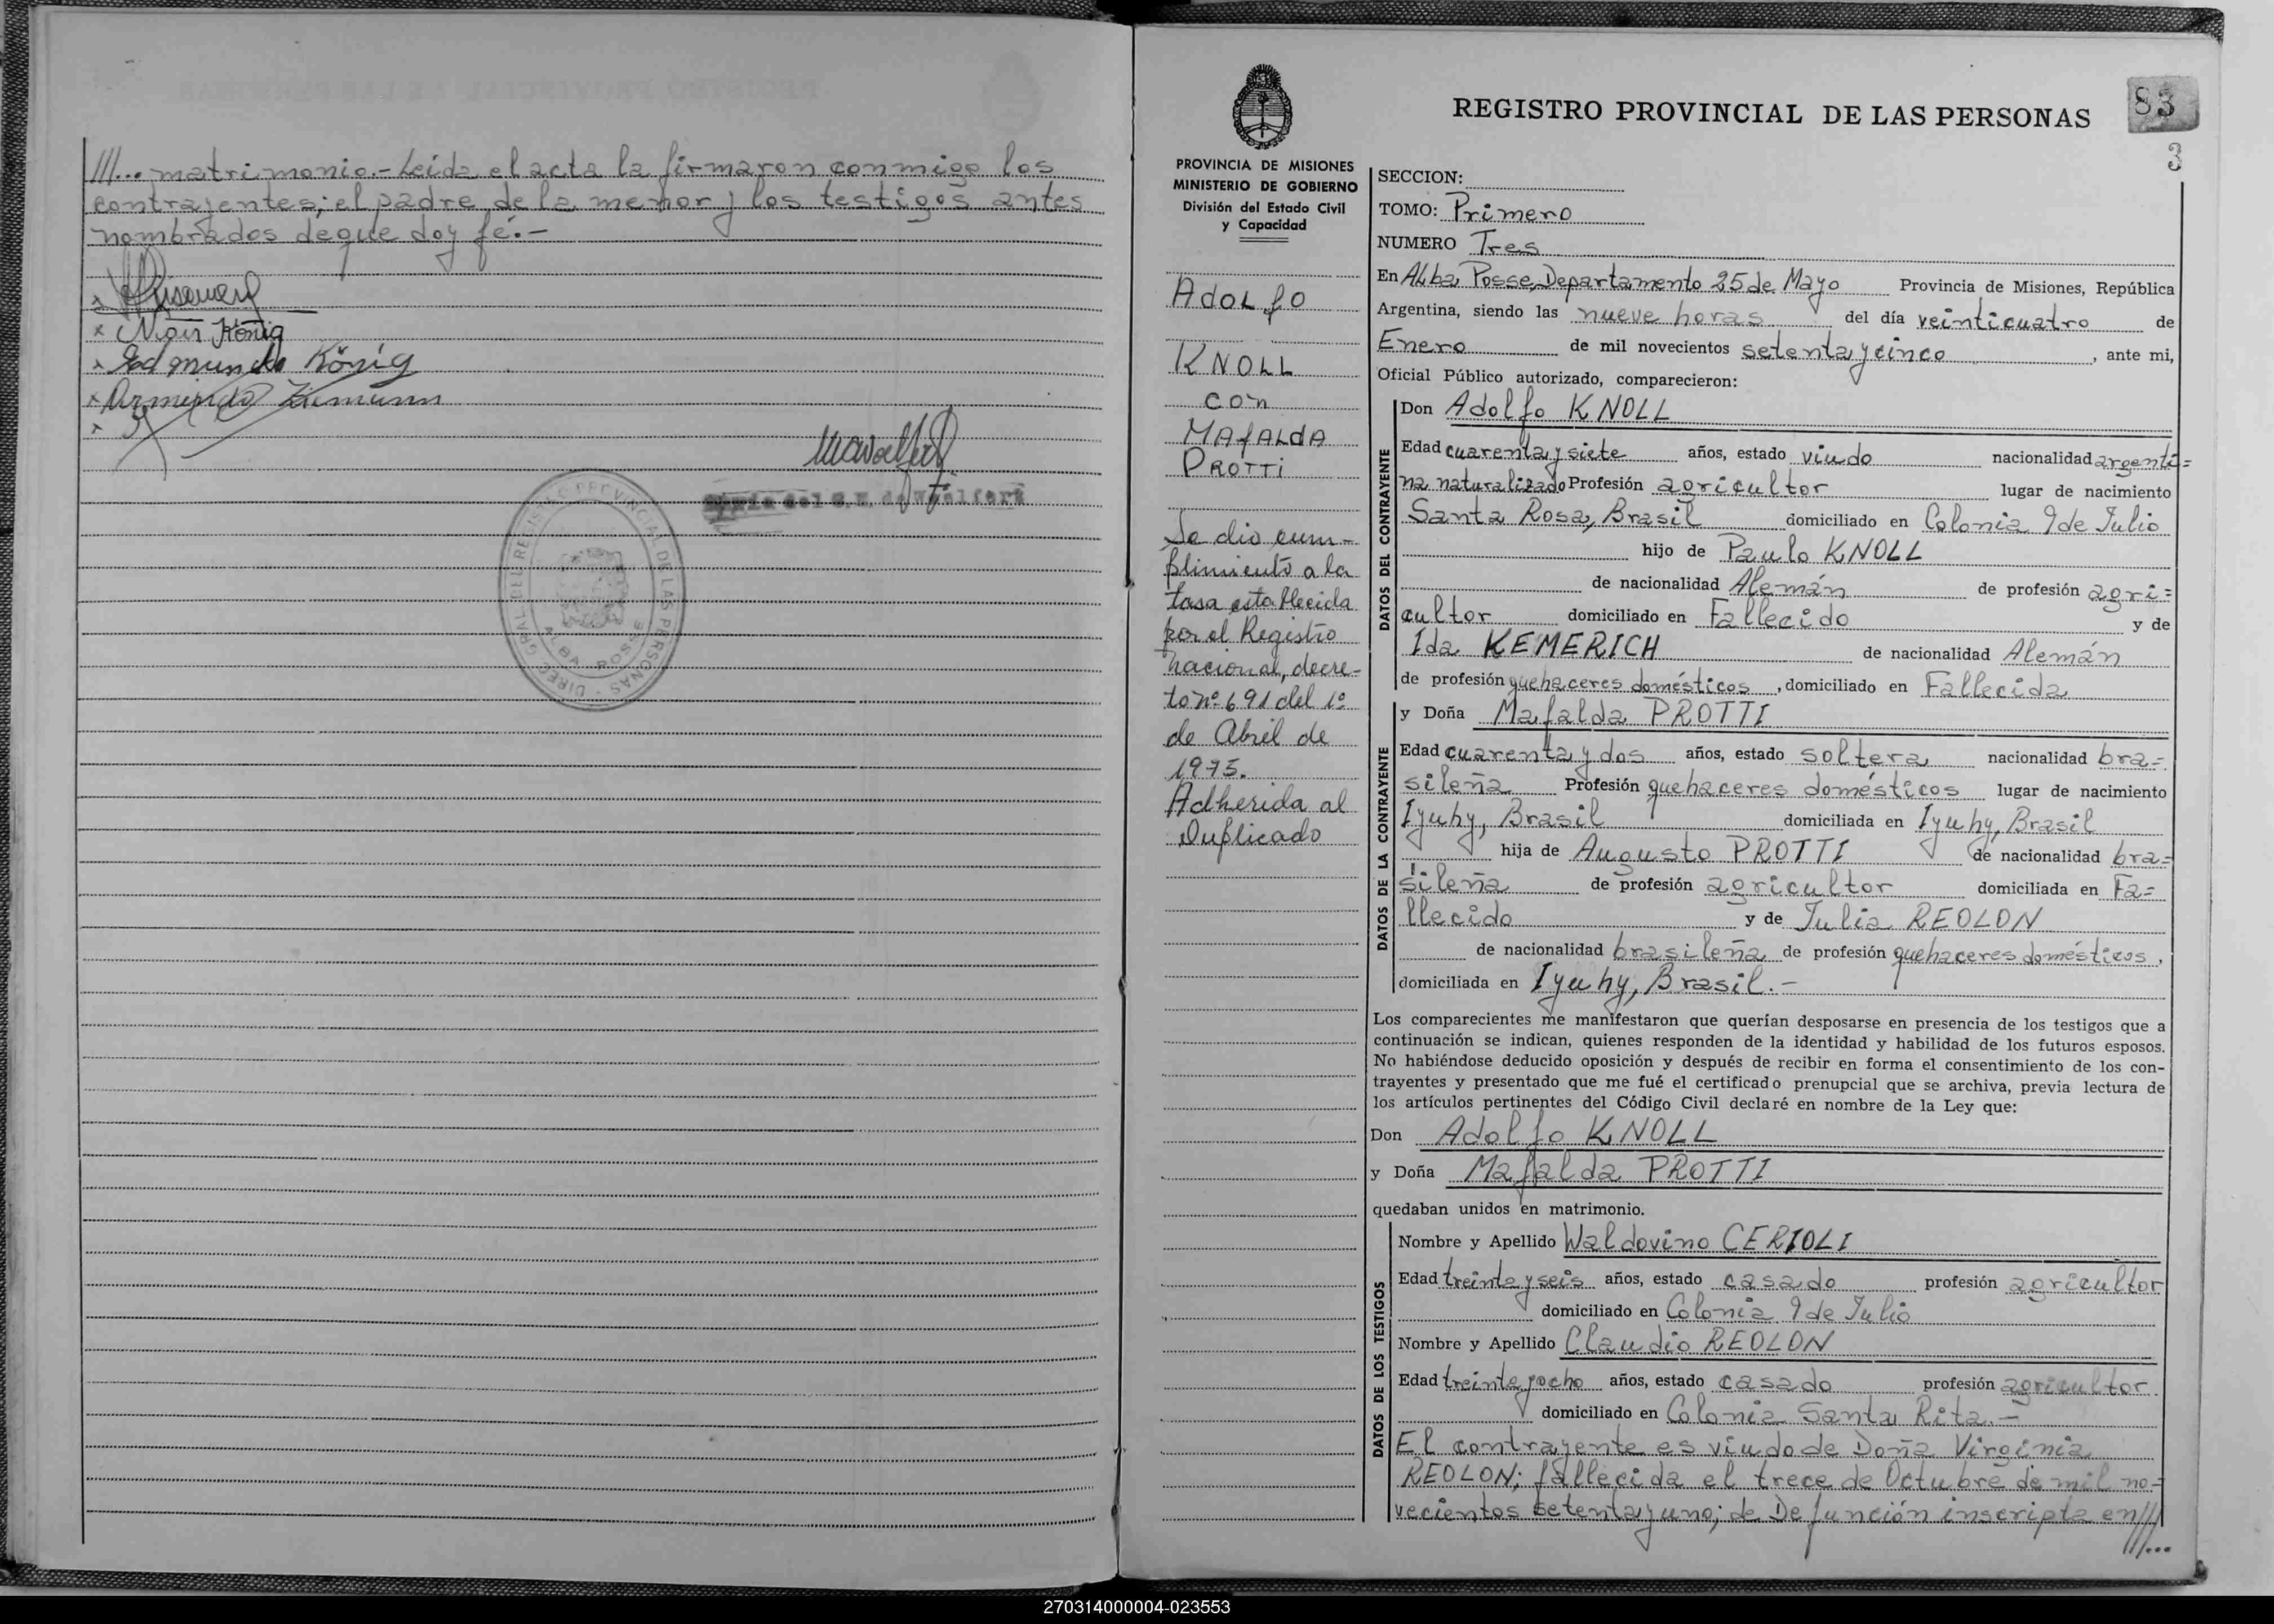 ///... matrimonio.- Leída el acta la firmaron conmigo los
contrayentes; el padre de la menor y los testigos antes
nombrados de que doy fé.-
x Nigir König
x Edmundo König
x Armindo
DIREC. GRAL. DEL REGISTRO PROVINCIAL DE LAS PERSONAS
ALBA POSSE
PROVINCIA DE MISIONES
MINISTERIO DE GOBIERNO
División del Estado Civil
y Capacidad
ADOLFO
KNOLL
con
MAFALDA
PROTTI
Se dio cum-
plimiento a la
tasa establecida
por el Registro
nacional, decre-
to nº 691 del 1º
de Abril de
1975.
Adherida al
Duplicado
REGISTRO PROVINCIAL DE LAS PERSONAS
83
3
SECCION:
TOMO: Primero
NUMERO Tres
En Alba Posse, Departamento 25 de Mayo Provincia de Misiones, República
Argentina, siendo las nueve horas del día veinticuatro de
Enero de mil novecientos setenta y cinco, ante mi,
Oficial Público autorizado, comparecieron:
DATOS DEL CONTRAYENTE
Don Adolfo KNOLL
Edad cuarenta y siete años, estado viudo nacionalidad argenti=
na naturalizado Profesión agricultor lugar de nacimiento
Santa Rosa, Brasil domiciliado en Colonia 9 de Julio
hijo de Paulo KNOLL
de nacionalidad Alemán de profesión agri=
cultor domiciliado en Fallecido y de
Ida KEMERICH de nacionalidad Alemán
de profesión quehaceres domésticos, domiciliado en Fallecida
DATOS DE LA CONTRAYENTE
y Doña Mafalda PROTTI
Edad cuarenta y dos años, estado soltera nacionalidad bra=
sileña Profesión quehaceres domésticos lugar de nacimiento
Iyuhy, Brasil domiciliada en Iyuhy, Brasil
hija de Augusto PROTTI de nacionalidad bra=
sileña de profesión agricultor domiciliada en Fa=
llecido y de Julia REOLON
de nacionalidad brasileña de profesión quehaceres domésticos,
domiciliada en Iyuhy, Brasil.-
Los comparecientes me manifestaron que querían desposarse en presencia de los testigos que a
continuación se indican, quienes responden de la identidad y habilidad de los futuros esposos.
No habiéndose deducido oposición y después de recibir en forma el consentimiento de los con-
trayentes y presentado que me fué el certificado prenupcial que se archiva, previa lectura de
los artículos pertinentes del Código Civil declaré en nombre de la Ley que:
Don Adolfo KNOLL
y Doña Mafalda PROTTI
quedaban unidos en matrimonio.
DATOS DE LOS TESTIGOS
Nombre y Apellido Waldovino CERIOLI
Edad treinta y seis años, estado casado profesión agricultor
domiciliado en Colonia 9 de Julio
Nombre y Apellido Claudio REOLON
Edad treinta y ocho años, estado casado profesión agricultor
domiciliado en Colonia Santa Rita.-
El contrayente es viudo de Doña Virginia
REOLON; fallecida el trece de Octubre de mil no-
vecientos setenta y uno; de Defunción inscripta en///
///...
270314000004-023553